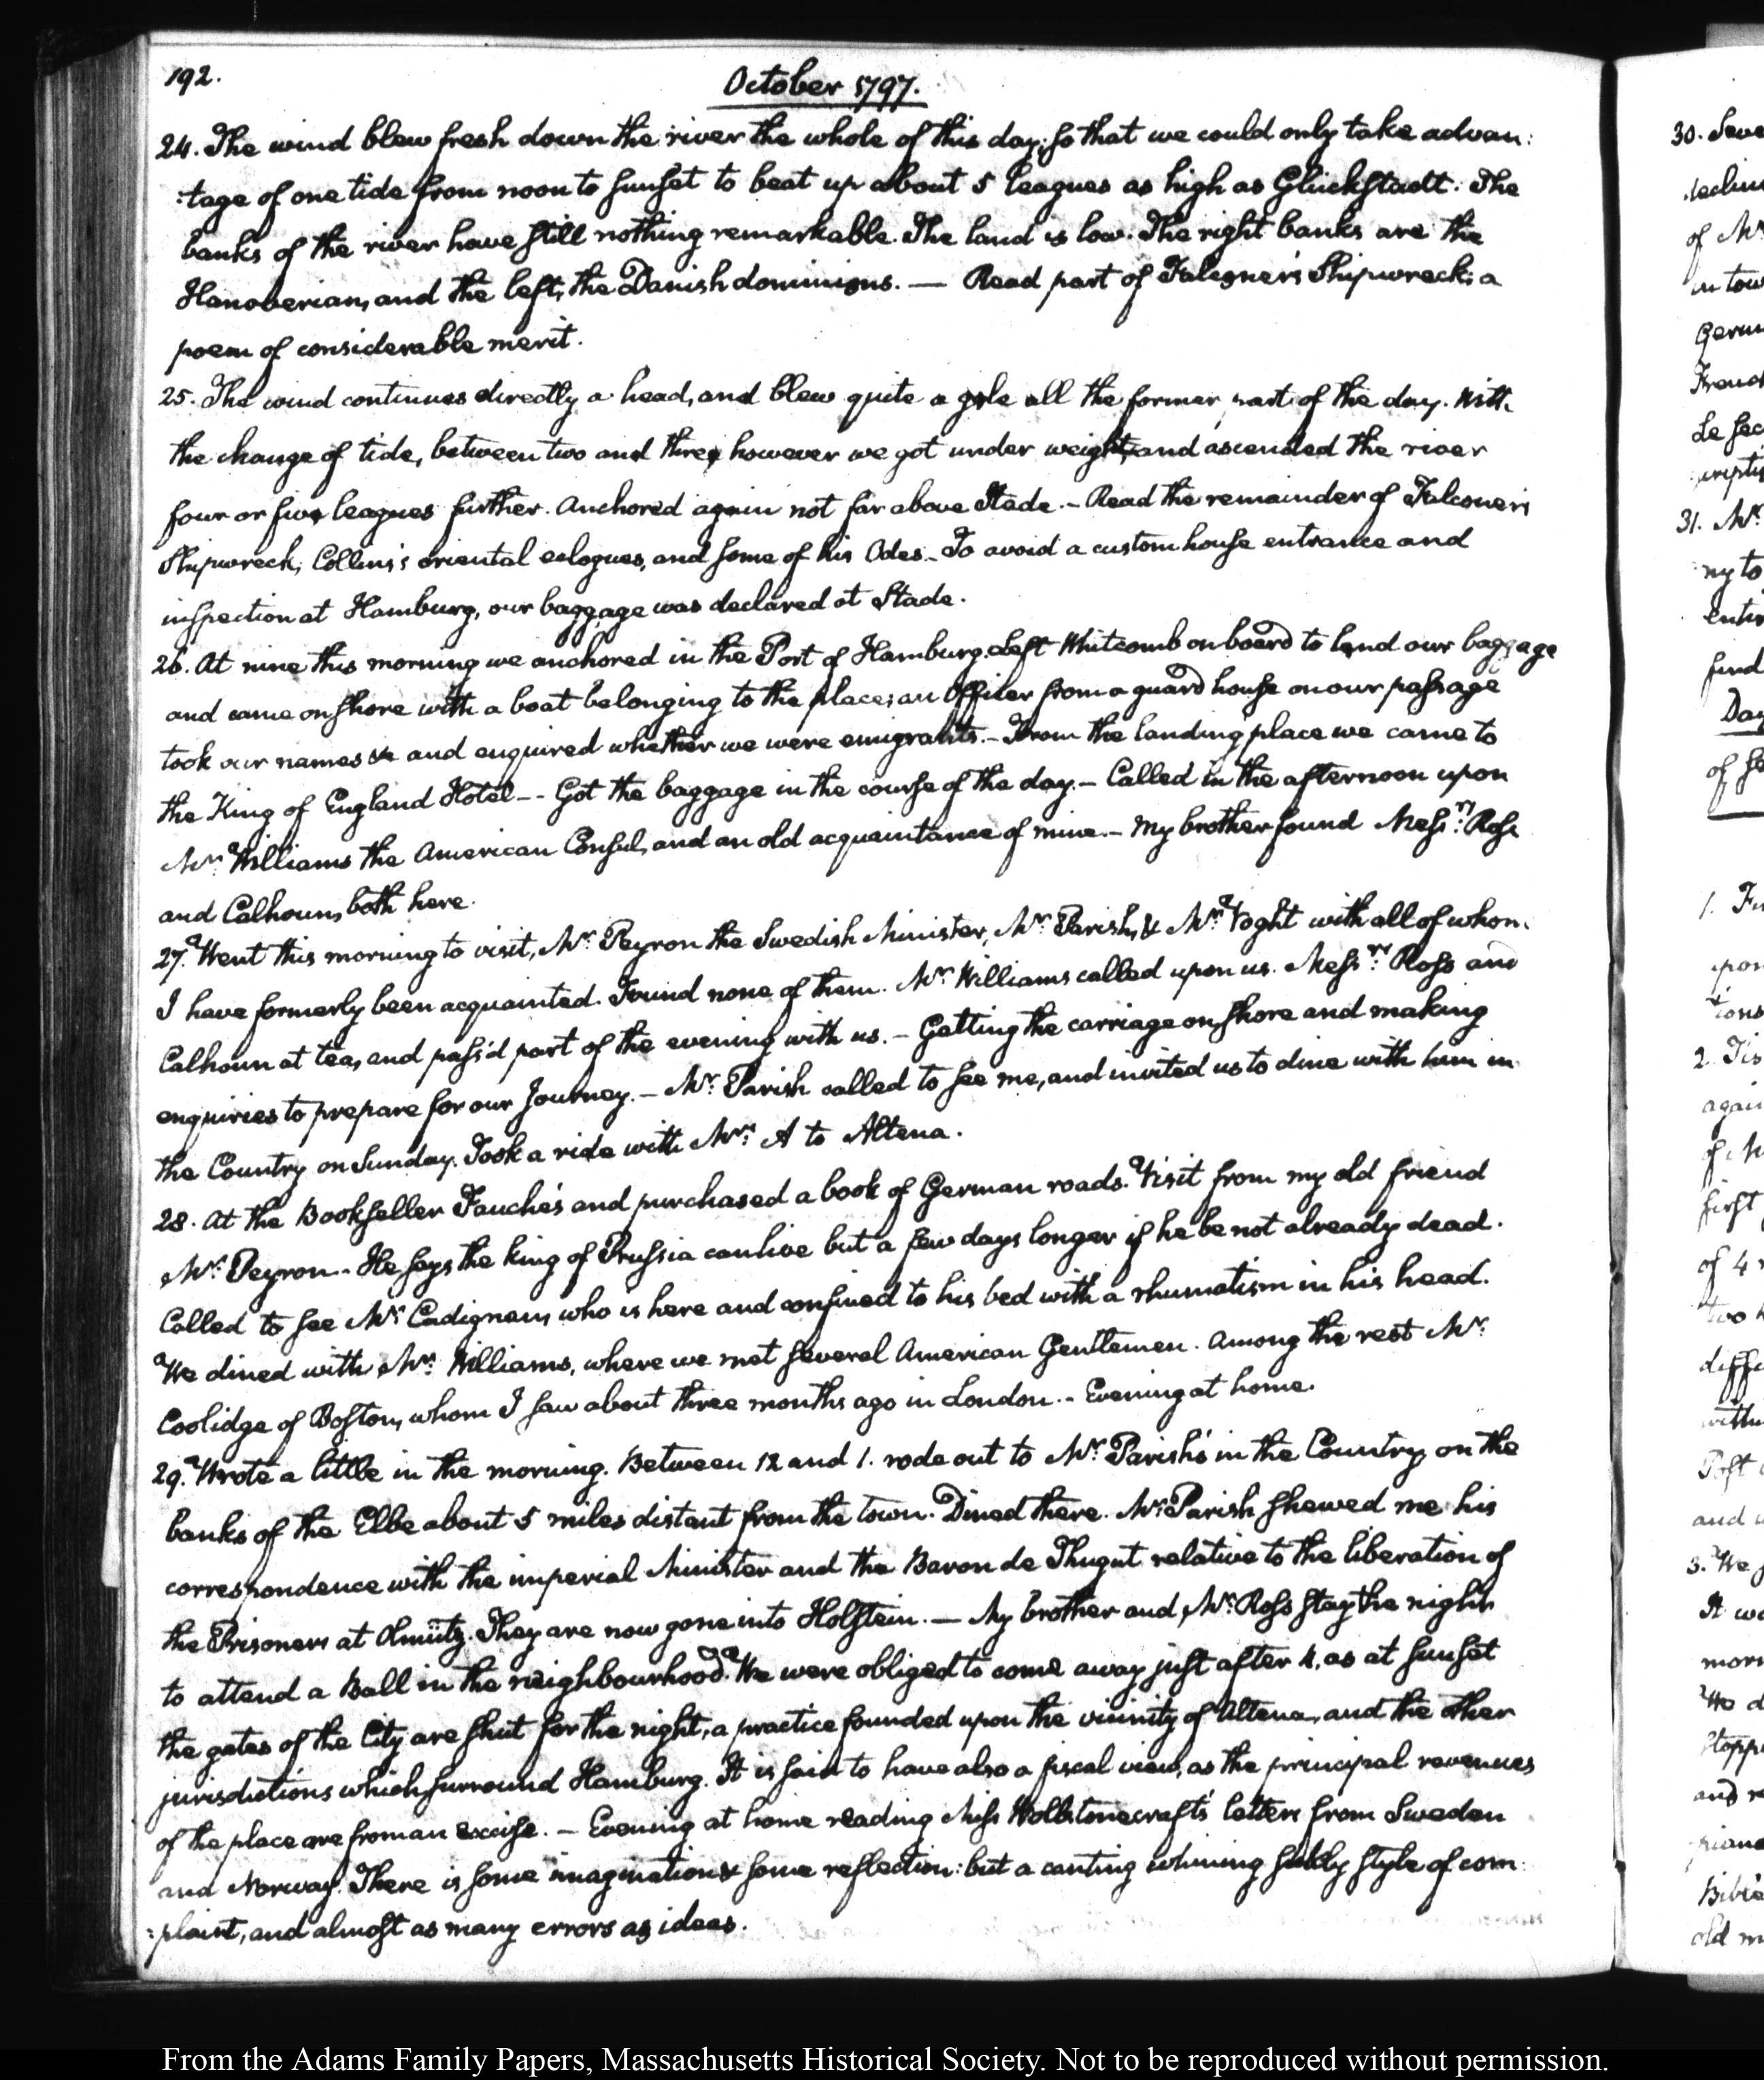 192.
October 1797.
24. The wind blew fresh down the river the whole of this day; so that we could only take advan:
:tage of one tide from noon to sunset to beat up about 5 leagues as high as Glückstadt. The
banks of the river have still nothing remarkable. The land is low. The right banks are the
Hanoverian, and the left, the Danish dominions. — Read part of Falconer's Shipwreck; a
poem of considerable merit.
25. The wind continues directly a head, and blew quite a gale all the former part of the day. With
the change of tide, between two and three, however we got under weight, and ascended the river
four or five leagues further. Anchored again not far above Stade. - Read the remainder of Falconer's
Shipwreck, Collins's oriental eclogues, and some of his Odes. - To avoid a custom house entrance and
inspection at Hamburg, our baggage was declared at Stade.
26. At nine this morning we anchored in the Port of Hamburg. Left Whitcomb on board to land our baggage
and came on shore with a boat belonging to the place; an Officer from a guard house on our passage
took our names &c and enquired whether we were emigrants. - From the landing place we came to
the King of England Hotel - - Got the baggage in the course of the day. - Called in the afternoon upon
Mr. Williams the American Consul, and an old acquaintance of mine. - My brother found Messrs. Ross
and Calhoun, both here.
27. Went this morning to visit, Mr. Peyron the Swedish Minister, Mr. Parish, & Mr. Voght with all of whom
I have formerly been acquainted. Found none of them. Mr. Williams called upon us. Messrs. Ross and
Calhoun at tea, and pass'd part of the evening with us. - Getting the carriage on shore and making
enquiries to prepare for our Journey. - Mr. Parish called to see me, and invited us to dine with him in
the Country on Sunday. Took a ride with Mrs. A to Altena.
28. At the Bookseller Fauche's and purchased a book of German roads. Visit from my old friend
Mr. Peyron. - He says the king of Prussia can live but a few days longer if he be not already dead.
Called to see Mr. Cadignan, who is here and confined to his bed with a rhumatism in his head.
We dined with Mr. Williams, where we met several American Gentlemen. Among the rest Mr.
Coolidge of Boston, whom I saw about three months ago in London. - Evening at home.
29. Wrote a little in the morning. Between 12 and 1. rode out to Mr. Parish's in the Country, on the
banks of the Elbe about 5 miles distant from the town. Dined there. Mr. Parish shewed me his
correspondence with the imperial Minister and the Baron de Thugut relative to the liberation of
the Prisoners at Olmütz. They are now gone into Holstein. — My brother and Mr. Ross stay the night
to attend a Ball in the neighbourhood. We were obliged to come away just after 4, as at sunset
the gates of the City are shut for the night, a practice founded upon the vicinity of Altena, and the other
jurisdictions which surround Hamburg. It is said to have also a fiscal view, as the principal revenues
of the place are from an excise. - Evening at home reading Miss Wollstonecraft's letters from Sweden
and Norway. There is some imagination & some reflection: but a canting whining style of com:
:plaint, and almost as many errors as ideas.
30.
of Mr
31. Mr.
1.
2.
of 4
3. We
From the Adams Family Papers, Massachusetts Historical Society. Not to be reproduced without permission.